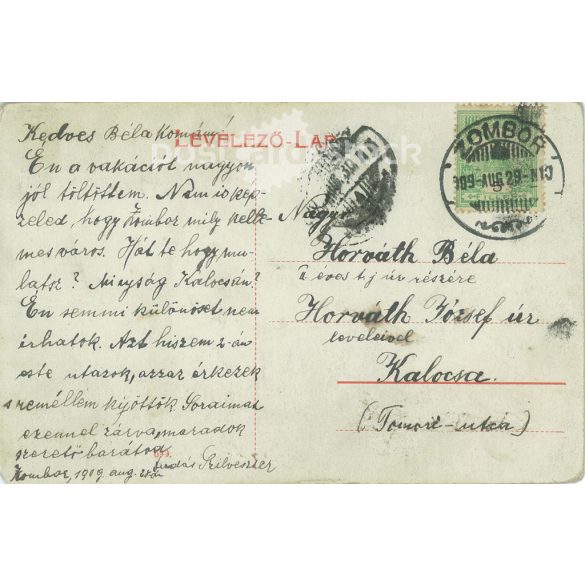 LEVELEZŐ-LAP
Kedves Béla Komám!
Én a vakációt nagyon
jól töltöttem. Nem is kép-
zeled, hogy Zombor mily kelle-
mes város. Hát te hogy mu-
latsz? Mi ujság Kalocsán?
Én semmi különöset nem
írhatok. Azt hiszem 2-án
este utazok, azzal érkezek
s remélem kijöttök Soraimat
ezennel zárva, maradok
szerető barátod
Szilveszter
Zombor, 1909 aug.
Nagys
Horváth Béla
úr részére
Horváth József úr
leveleivel
Kalocsa.
(Tomori-utca)
ZOMBOR
699.
postcards